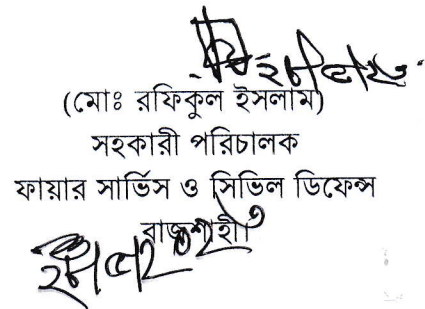 (মোঃ রফিকুল ইসলাম)
সহকারী পরিচালক
ফায়ার সার্ভিস ও সিভিল ডিফেন্স
রাজশাহী।